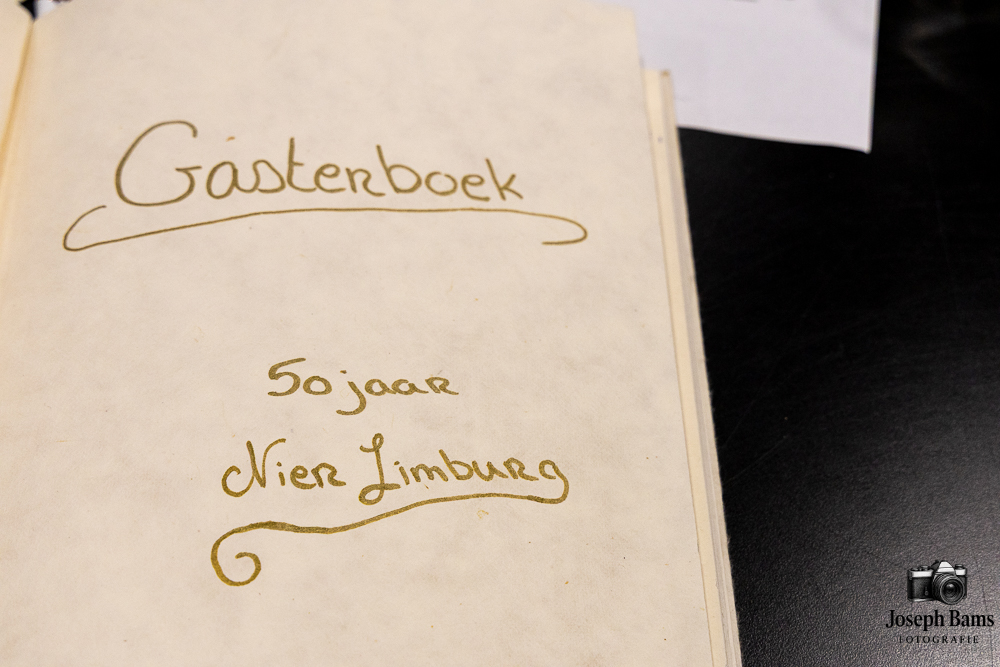 Gastenboek
50 jaar
Nier Limburg
Joseph Bams
FOTOGRAFIE